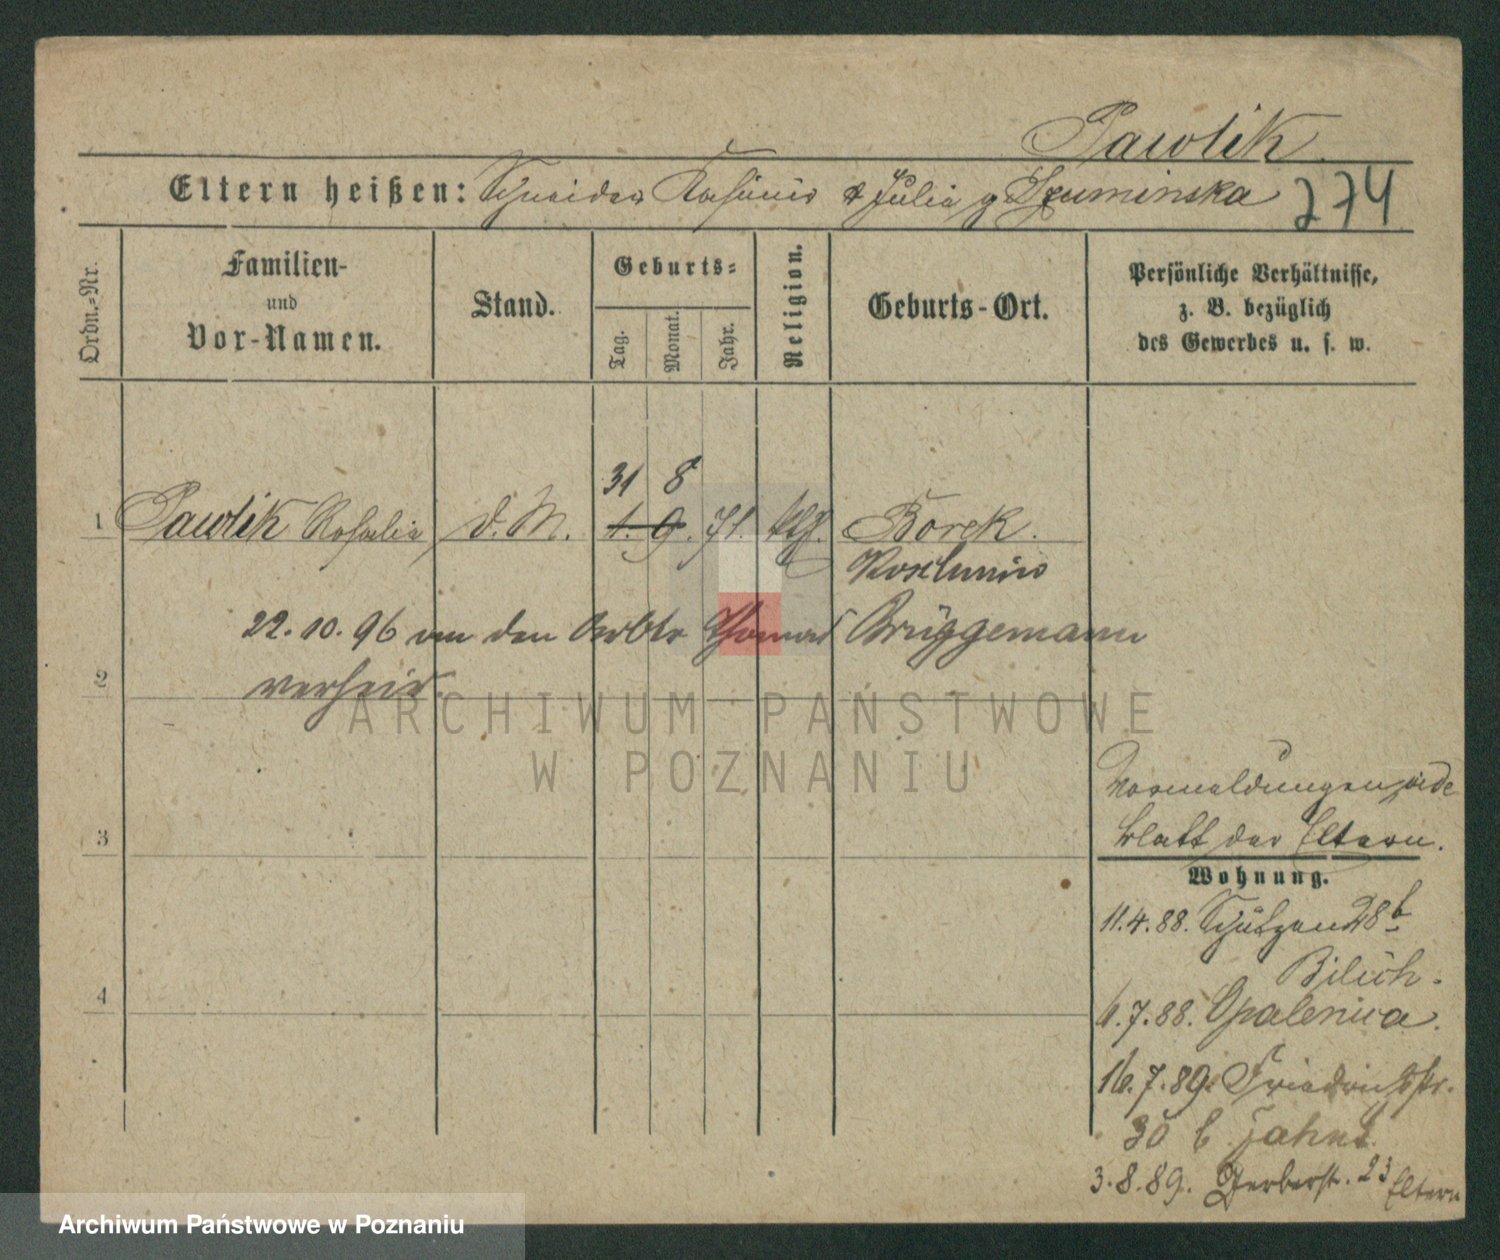 Pawlik
Eltern heißen: Schneider Kasimir & Julia g Szuminska 274
Ordn.-Nr.
Familien-
und
Vor-Namen.
Stand.
Geburts-
Tag.
Monat.
Jahr.
Religion.
Geburts-Ort.
Persönliche Verhältnisse,
z. B. bezüglich
des Gewerbes u. s. w.
31 8
1 Pawlik Rosalia d. M. 1. 9. 71. kth. Borek.
Koschmin
22.10.96 an den Arbtr Thomas Brüggemann
2 verheir.
Vormeldungen siehe
3 blatt der Eltern.
Wohnung.
11.4.88. Schützen 28b
Bilich.
4 6.7.88. Opalenica.
16.7.89. Friedrichstr.
30 b. Jahns
3.8.89. Gerberstr. 23 Eltern
ARCHIWUM PAŃSTWOWE
W POZNANIU
Archiwum Państwowe w Poznaniu